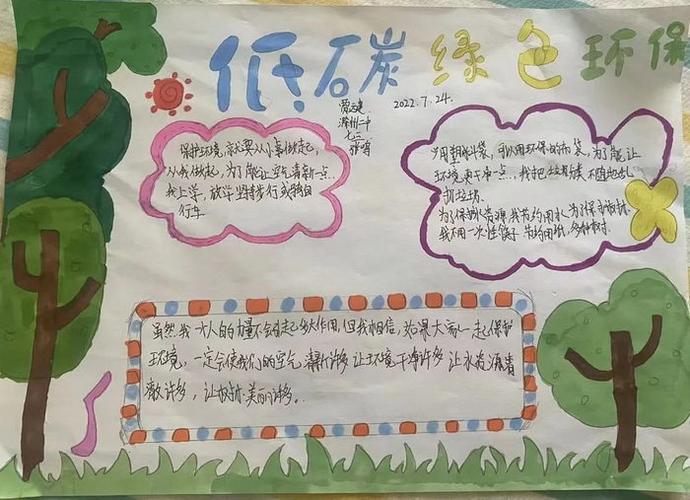 低碳 绿色 环保
2022.7.24.
滁州一中
七三
保护环境,就要从小事做起,
从我做起,为了能让空气清新一点,
我上学,放学坚持步行或骑自
行车
少用塑料袋,可以用环保的布袋,为了能让
环境更干净一点,我把垃圾分类不随地乱
扔垃圾.
为了保护资源我节约用水,为了保护树林
我不用一次性筷子,节约用纸,多种树.
虽然我一个人的力量不会起多大作用,但我相信,如果大家一起保护
环境,一定会使我们的空气清新许多 让环境干净许多 让水资源清
澈许多,让树林美丽许多.